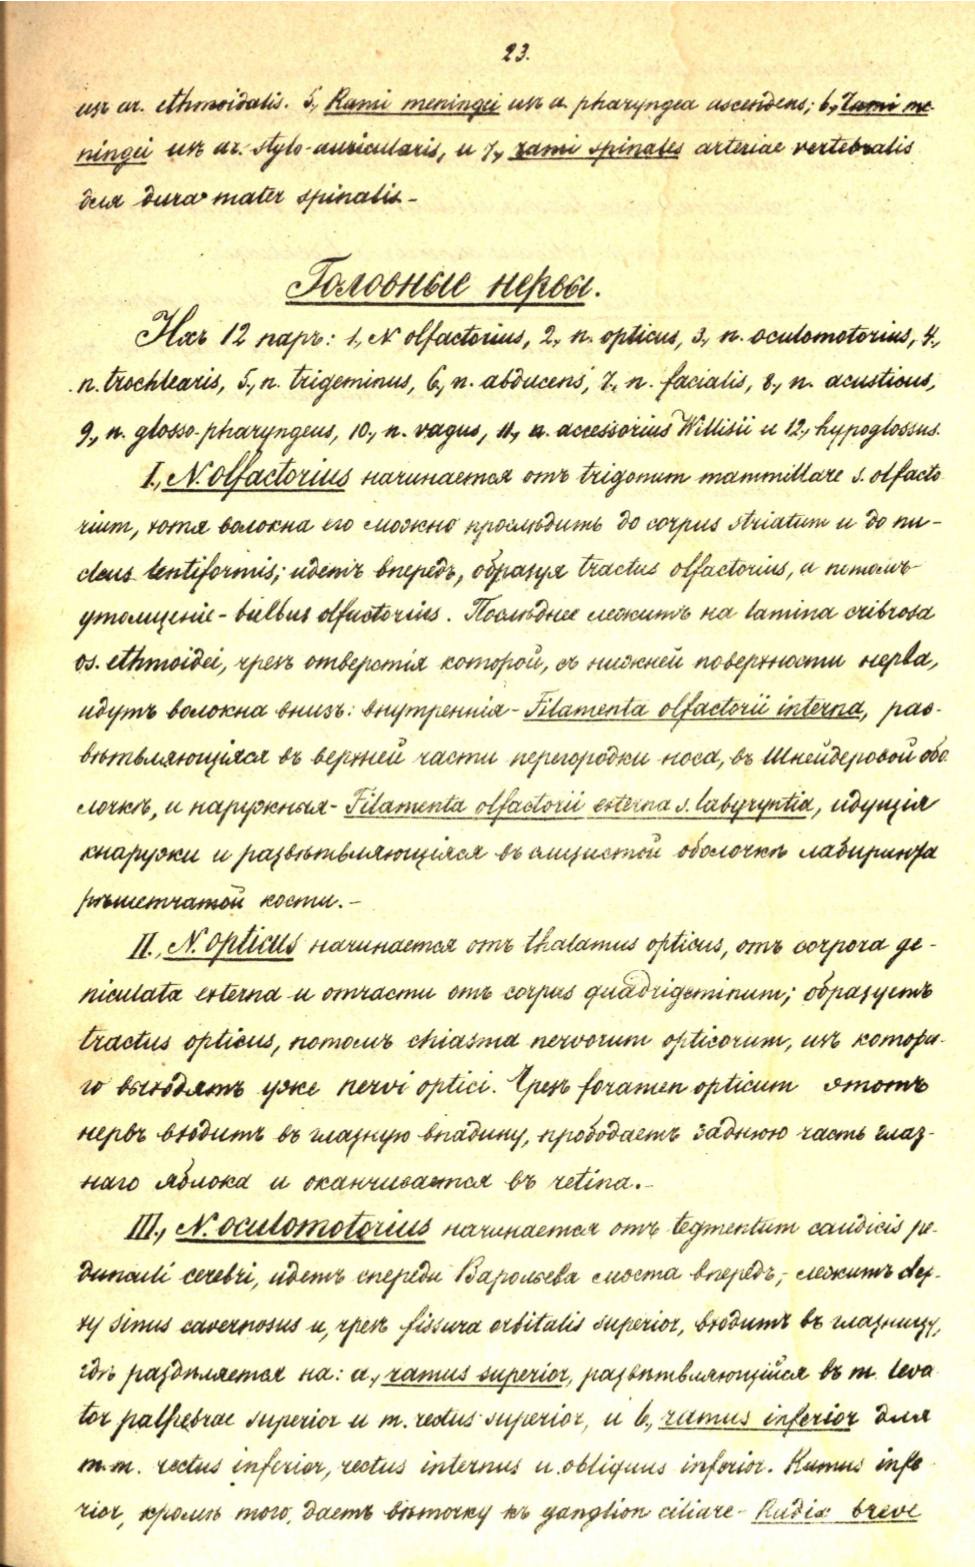 23.
изъ ar. ethmoidalis. 5, Rami meningei изъ a. pharyngea ascendens; 6, Rami me-
ningei изъ ar. stylo-auricularis, и 7, rami spinales arteriae vertebralis
для dura mater spinalis.-
Головные нервы.
Ихъ 12 паръ: 1, N olfactorius, 2, n. opticus, 3, n. oculomotorius, 4,
n. trochlearis, 5, n. trigeminus, 6, n. abducens, 7, n. facialis, 8, n. acusticus,
9, n. glosso-pharyngeus, 10, n. vagus, 11, n. accessorius Willisii и 12, hypoglossus.
I, N. olfactorius начинается отъ trigonum mammillare s. olfacto
rium, хотя волокна его можно прослѣдить до corpus striatum и до nu-
cleus lentiformis; идетъ впередъ, образуя tractus olfactorius, а потомъ
утолщеніе - bulbus olfactorius. Послѣднее лежитъ на lamina cribrosa
os. ethmoidei, чрезъ отверстія которой, съ нижней поверхности нерва,
идутъ волокна внизъ: внутреннія - Filamenta olfactorii interna, раз-
вѣтвляющіяся въ верхней части перегородки носа, въ Шнейдеровой обо
лочкѣ, и наружныя - Filamenta olfactorii externa s. labyryntia, идущія
кнаружи и развѣтвляющіяся въ слизистой оболочкѣ лабиринѳа
рѣшетчатой кости.-
II., N. opticus начинается отъ thalamus opticus, отъ corpora ge-
niculata externa и отчасти отъ corpus quadrigeminum; образуетъ
tractus opticus, потомъ chiasma nervorum opticorum, изъ которо-
го выходятъ уже nervi optici. Чрезъ foramen opticum этотъ
нервъ входитъ въ глазную впадину, прободаетъ заднюю часть глаз-
наго яблока и оканчивается въ retina.-
III, N. oculomotorius начинается отъ tegmentum caudicis pe-
dunculi cerebri, идетъ спереди Варольева моста впередъ, лежитъ свер-
ху sinus cavernosus и, чрезъ fissura orbitalis superior, входитъ въ глазницу,
гдѣ раздѣляется на: a, ramus superior, развѣтвляющійся въ m. leva
tor palpebrae superior и m. rectus superior, и b, ramus inferior для
m.m. rectus inferior, rectus internus и obliquus inferior. Ramus infe
rior, кромѣ того, даетъ вѣточку къ ganglion ciliare - Radix breve